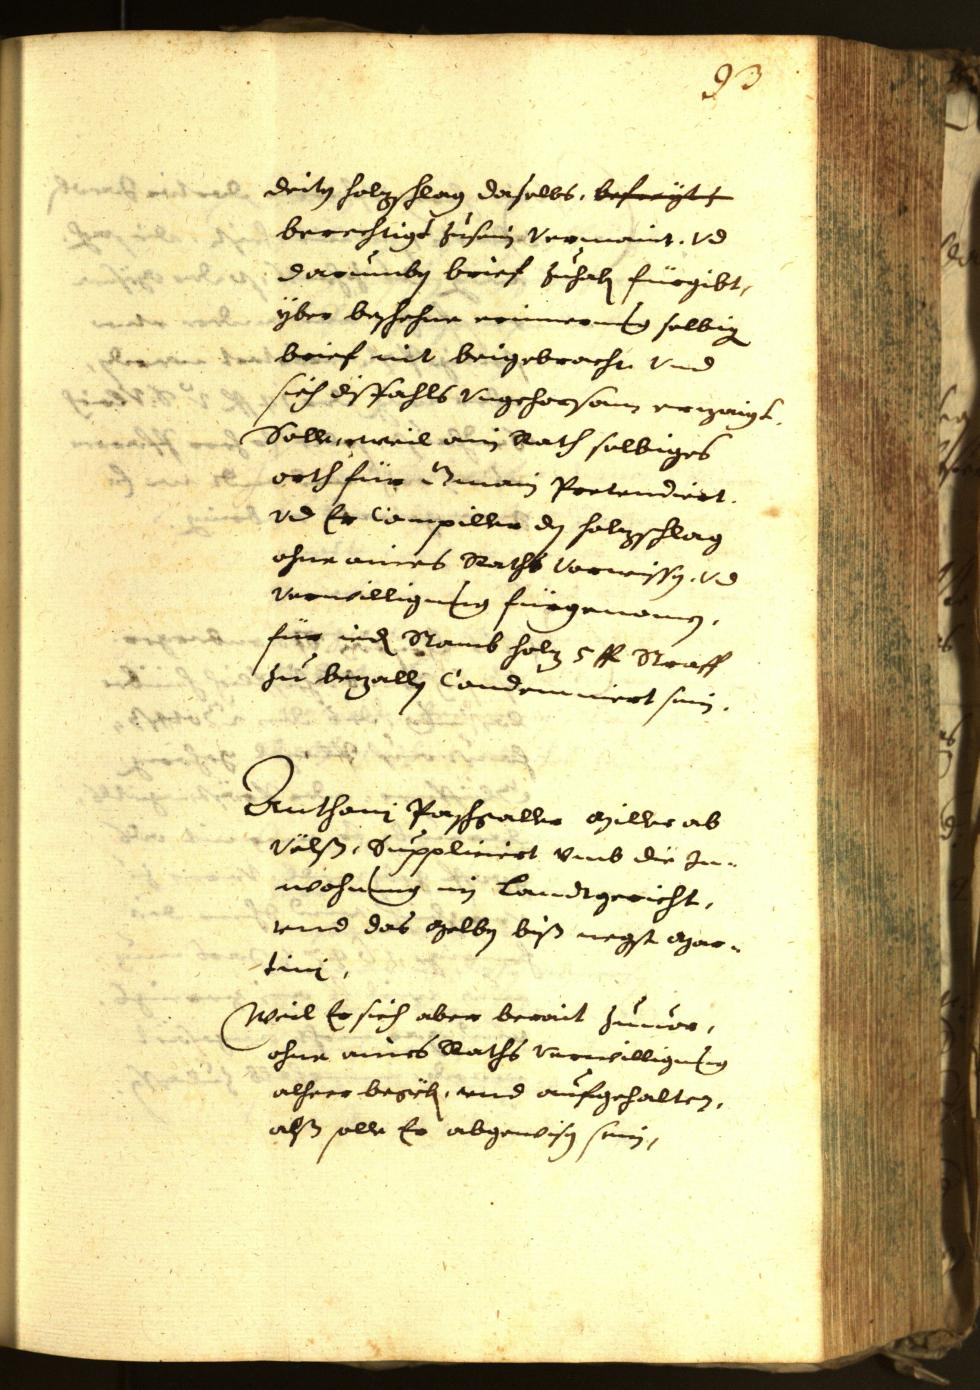 93
deits holzschlag daselbs, befreÿt
berechtigt zusein vermaint. vnd
darumben brief zuhaben fürgibt,
yber beschehne erinnerung selbige
brief nit beigebracht vnd
sich dißfahls vngehorsam erzaigt.
Solle, weil ain Rath selbiges
orth für gmain Pretendiert.
vnd Er Campiller den holzschlag
ohne aines Raths vorwissen, vnd
verwilligung fürgenomen,
für ieden Stamb holz 5 fl Straff
zu bezallen Condemniert sein.
Anthonj Paschgaller Miller ab
Völß, Suppliciert vmb die In-
wohnung im Landtgericht,
vnd das selben biß negst Mar-
tinj,
Weil Er sich aber berait zuuor,
ohne aines Raths verwilligung
alheer begeben, vnd aufgehalten,
alß solle Er abgewisen sein,